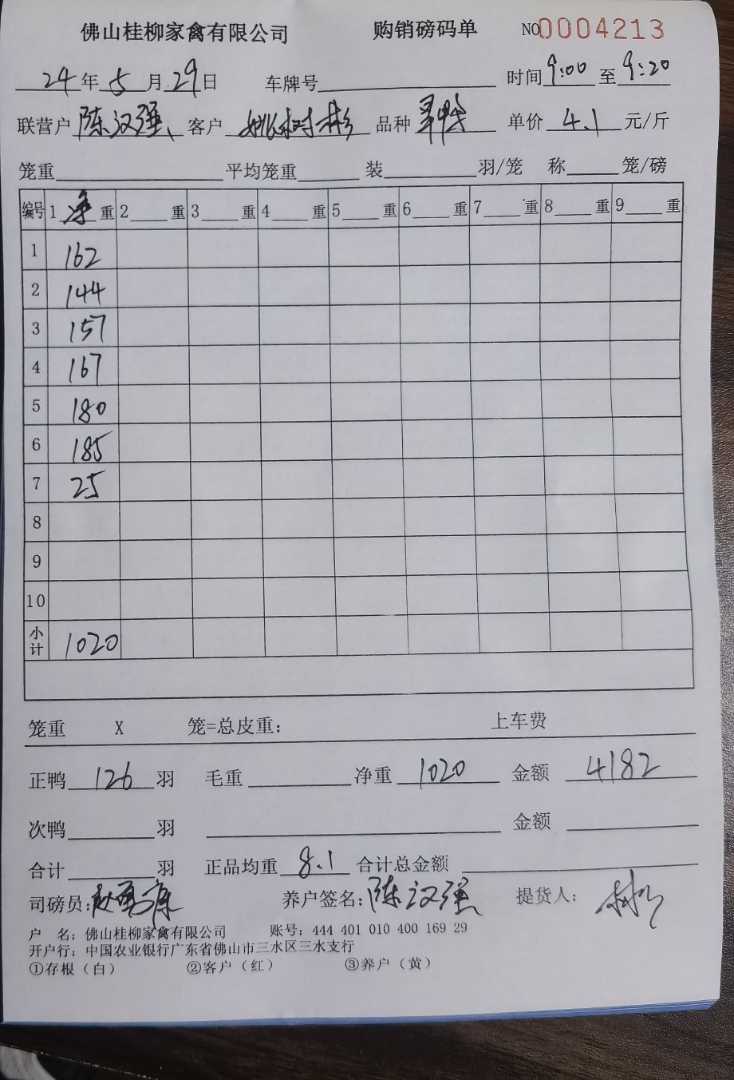 佛山桂柳家禽有限公司 购销磅码单 NO0004213
24年5月29日 车牌号 时间9:00至9:20
联营户陈汉强 客户姚树彬 品种 单价4.1元/斤
笼重 平均笼重 装 羽/笼 称 笼/磅
编号 1净重 2 重 3 重 4 重 5 重 6 重 7 重 8 重 9 重
1 162
2 144
3 157
4 167
5 180
6 185
7 25
8
9
10
小计 1020
笼重 X 笼=总皮重: 上车费
正鸭126羽 毛重 净重1020 金额4182
次鸭 羽 金额
合计 羽 正品均重8.1 合计总金额
司磅员: 养户签名:陈汉强 提货人:
户 名: 佛山桂柳家禽有限公司 账号: 444 401 010 400 169 29
开户行: 中国农业银行广东省佛山市三水区三水支行
①存根(白) ②客户(红) ③养户(黄)